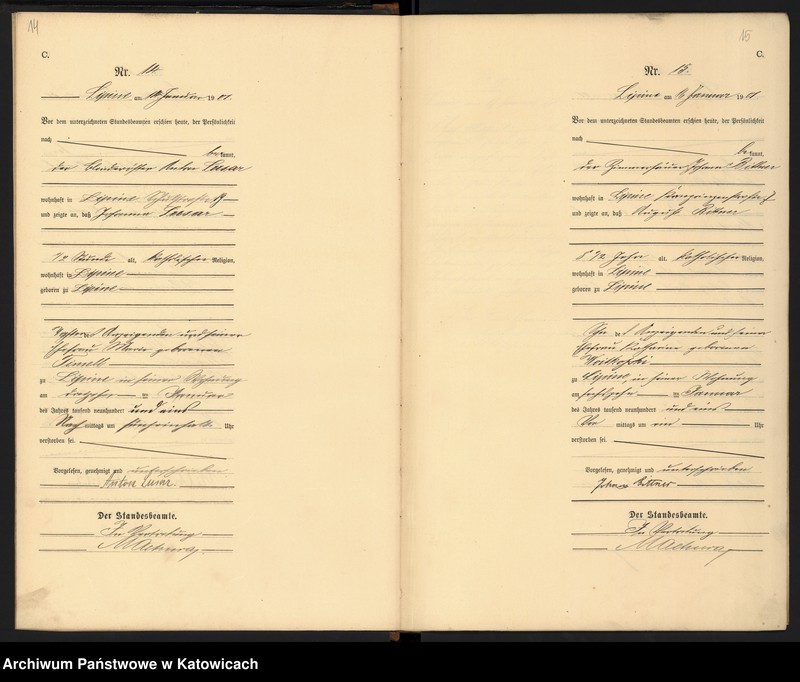 14
C.
Nr. 14.
Lipine am Januar 1901.
Vor dem unterzeichneten Standesbeamten erschien heute, der Persönlichkeit
nach
bekannt,
der Anton
wohnhaft in Lipine Schulstraße
und zeigte an, daß Johanna
1/2 Stunde alt, katholischer Religion,
wohnhaft in Lipine
geboren zu Lipine
Tochter des Anzeigenden und seiner
Ehefrau Marie geborenen
zu Lipine in seiner Wohnung
am Januar
des Jahres tausend neunhundert und eins
Nach mittags um Uhr
verstorben sei.
Vorgelesen, genehmigt und unterschrieben
Anton
Der Standesbeamte.
In Vertretung
15
C.
Nr. 15.
Lipine am Januar 1901.
Vor dem unterzeichneten Standesbeamten erschien heute, der Persönlichkeit
nach
bekannt,
der Zimmerhäuer Johann Bittner
wohnhaft in Lipine Kronprinzenstraße 7
und zeigte an, daß August Bittner
alt, katholischer Religion,
wohnhaft in Lipine
geboren zu Lipine
Sohn des Anzeigenden und seiner
Ehefrau Katharina geborenen
zu Lipine, in seiner Wohnung
am sechszehn Januar
des Jahres tausend neunhundert und eins
Vor mittags um ein Uhr
verstorben sei.
Vorgelesen, genehmigt und unterschrieben
Johann Bittner
Der Standesbeamte.
In Vertretung
Archiwum Państwowe w Katowicach